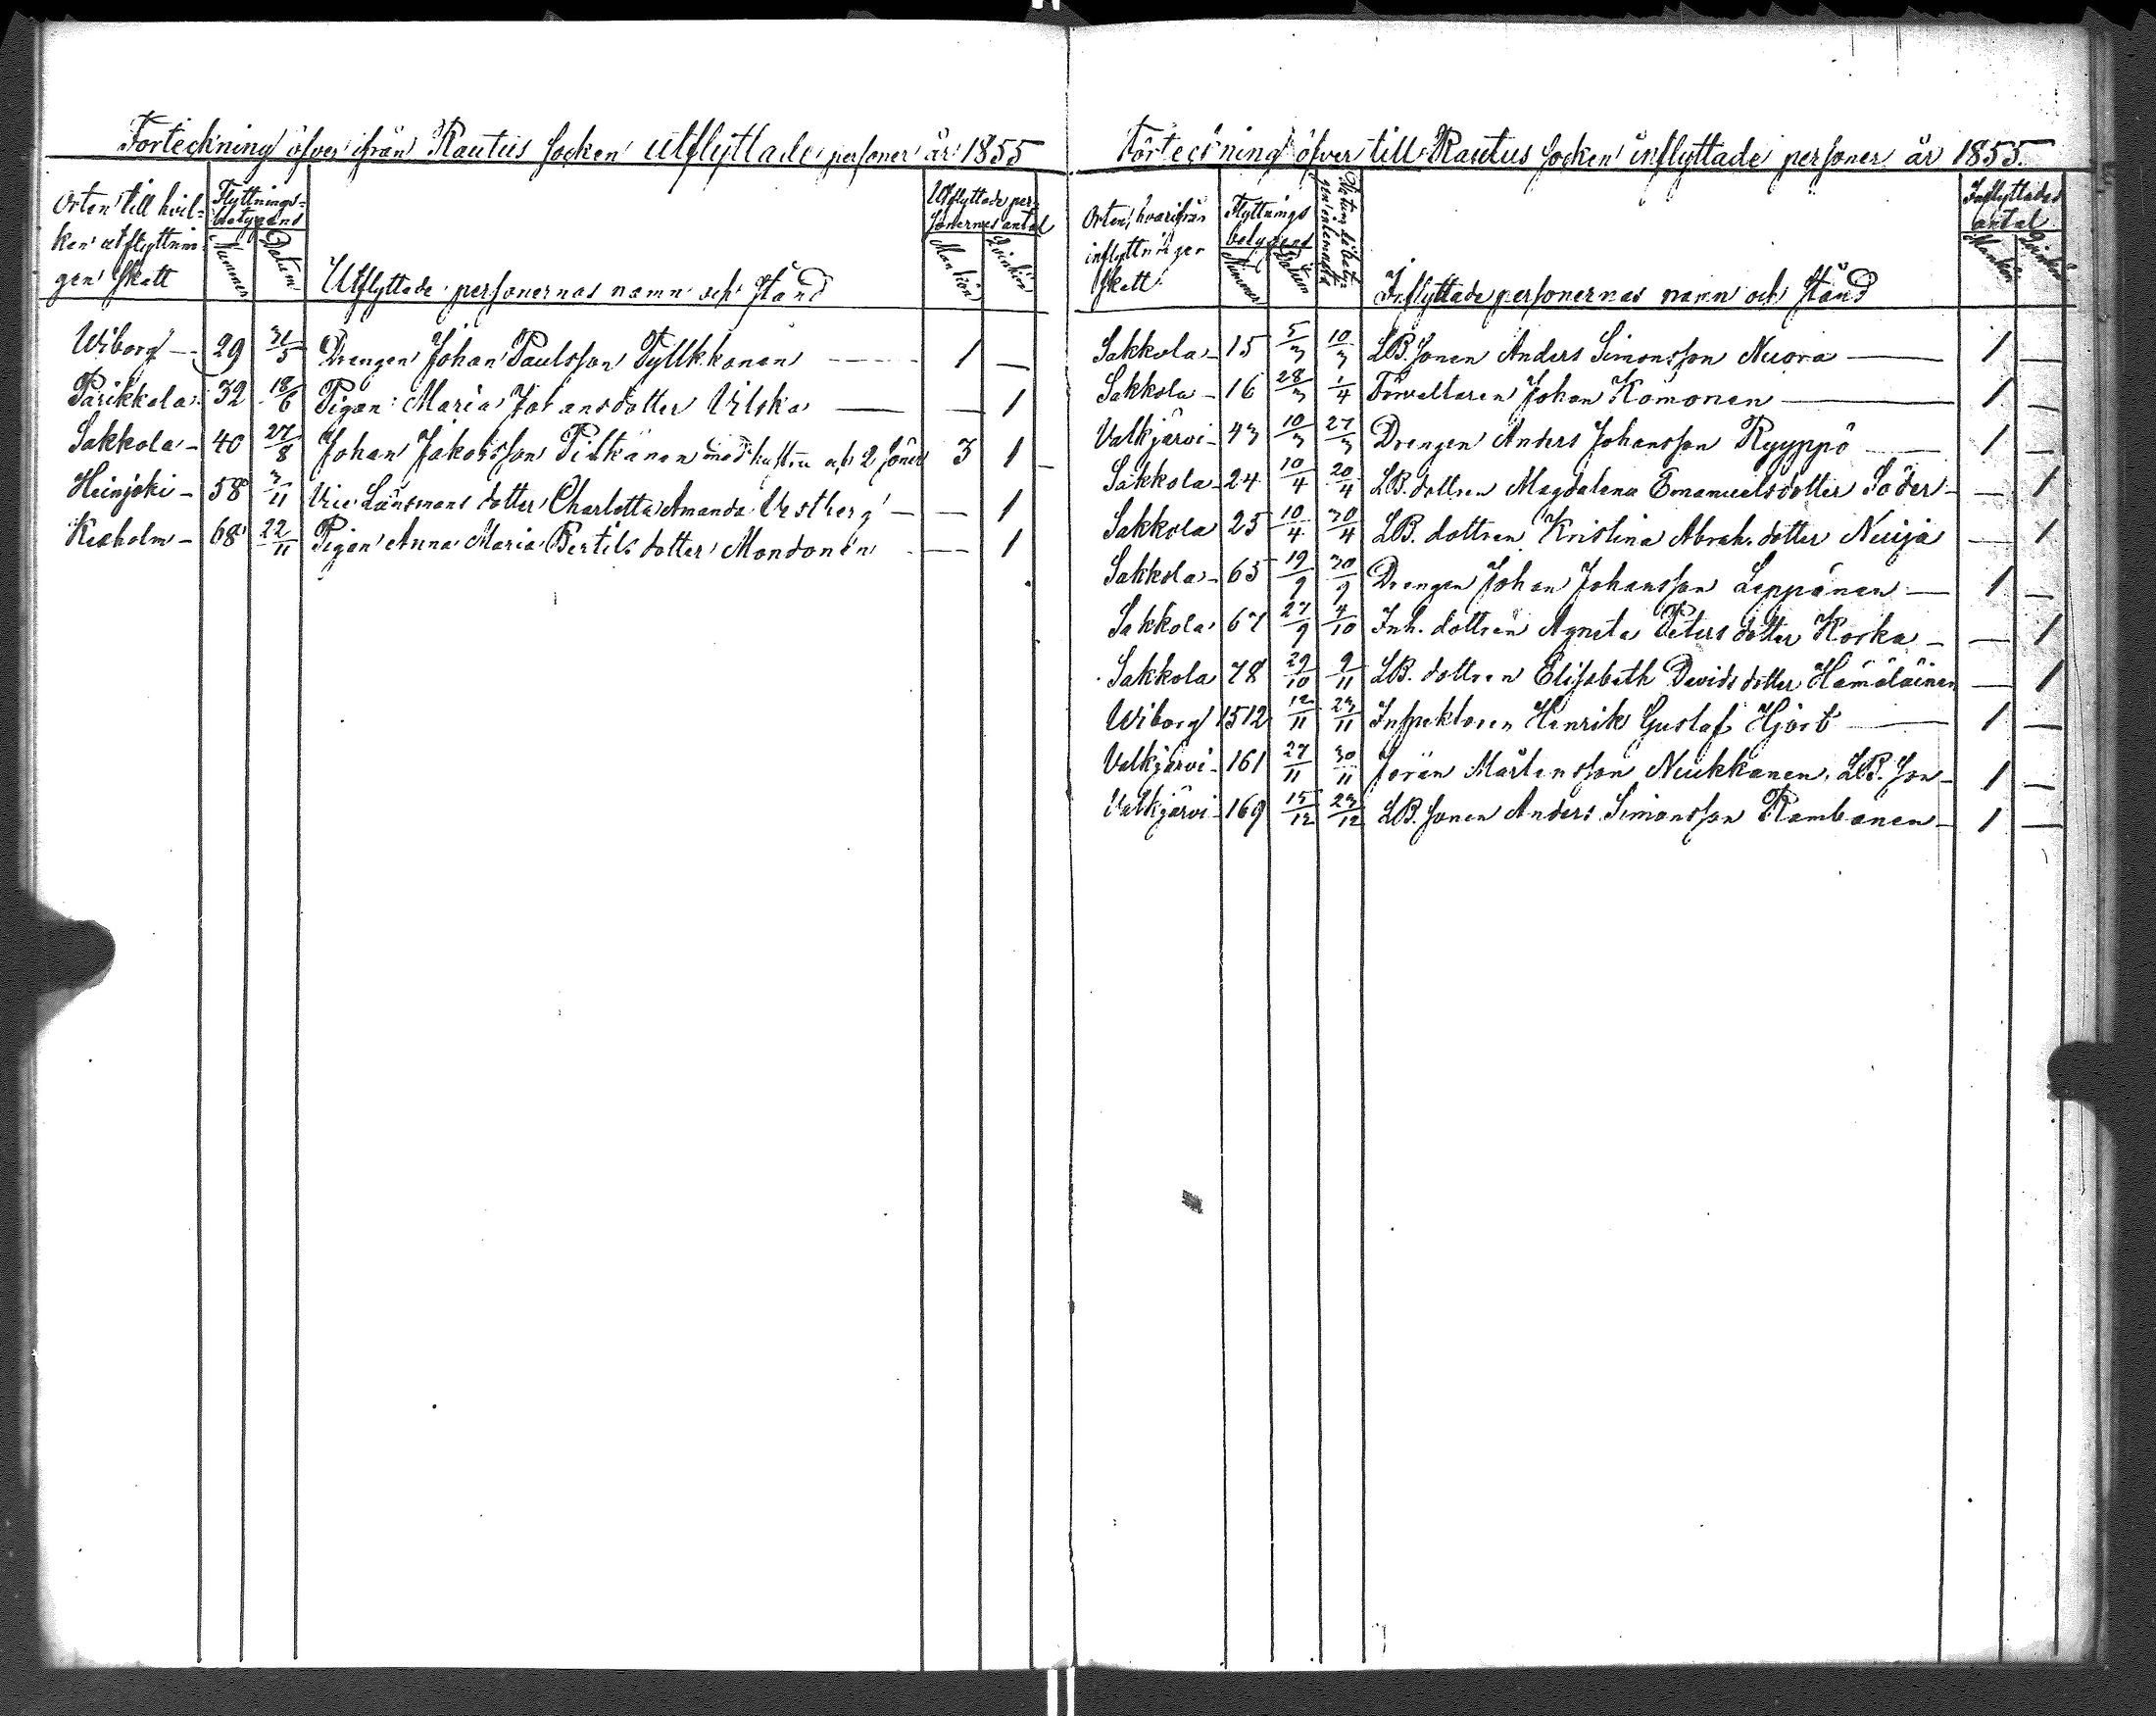 Förteckning öfver ifrån Rautus socken utflyttade personer år 1855
Orten till hvilken utflyttningen skett
Flyttningsbetygens
Nummer
Datum
Utflyttade personernas namn och stånd
Utflyttade personernas antal
Mankön
Qvinkön
Wiborg - 29 31/5 Drengen Johan Paulsson Tyllkkanen 1 —
Parikkala 32 18/6 Pigan Maria Johansdotter Vilska — 1
Sakkola - 40 27/8 Johan Jakobsson Pitkänen med hustru och 2 söner 3 1
Heinjoki - 58 3/11 Vice Länsmans dotter Charlotta Amanda Vestberg — 1
Kexholm - 68 22/11 Pigan Anna Maria Bertils dotter Mondonen — 1
Förteckning öfver till Rautus socken inflyttade personer år 1855.
Orten, hvarifrån inflyttningen skett
Flyttnings betygens
Nummer
Datum
Inflyttade personernas namn och stånd
Inflyttades antal
Mankön
Qvinkön
Sakkola - 15 5/3 10/3 LB. sonen Anders Simonsson Nuora — 1 —
Sakkola - 16 28/3 1/4 Förvaltaren Johan Komonen — 1 —
Valkjärvi - 43 10/3 27/3 Drengen Anders Johansson Ryyppö — 1 —
Sakkola - 24 10/4 20/4 LB. dottren Magdalena Emanuelsdotter Söder - — 1
Sakkola 25 10/4 30/4 LB. dottren Kristina Abrah. dotter Neuja — 1
Sakkola - 65 19/9 30/9 Drengen Johan Johansson Leppänen — 1 —
Sakkola 67 27/9 4/10 Inh. dottren Agneta Peters dotter Korka - — 1
Sakkola 78 29/10 9/11 LB. dottren Elisabeth Davids dotter Hämäläinen — 1
Wiborg 1512 12/11 23/11 Inspektoren Henrik Gustaf Hjört — 1 —
Valkjärvi - 161 27/11 30/11 Jöran Mårtensson Neukkanen, LB. son - 1 —
Valkjärvi - 169 15/12 23/12 LB. sonen Anders Simonsson Rambanen - 1 —